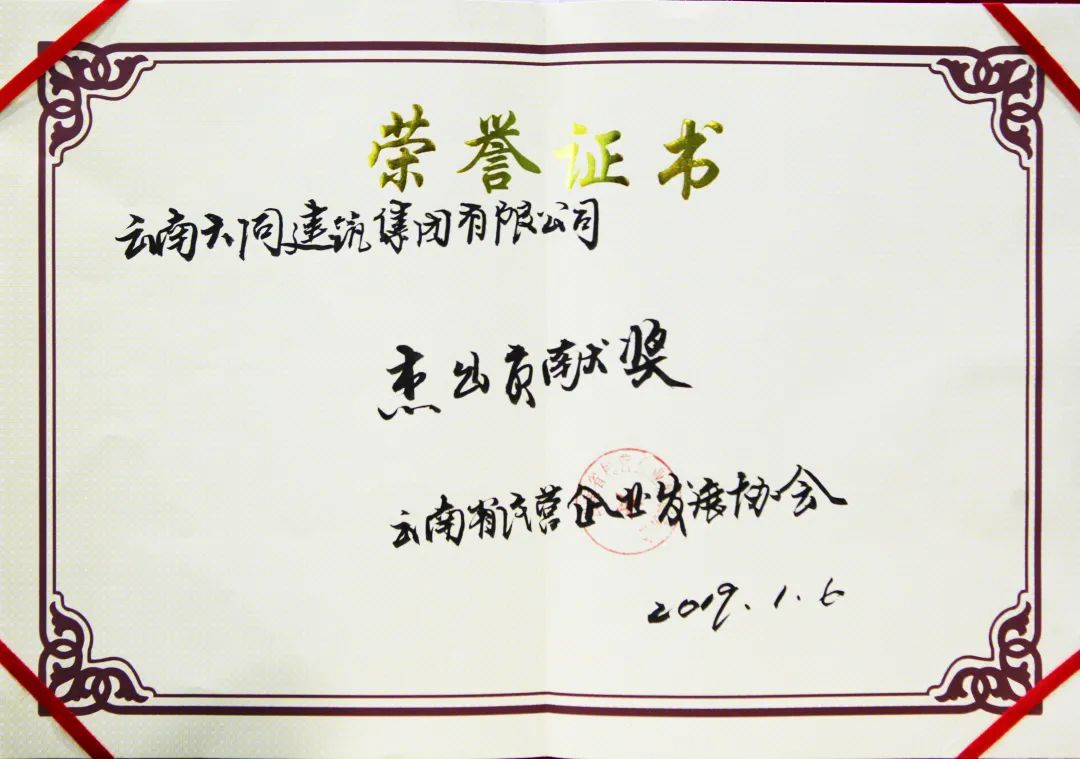 荣誉证书
云南天同建筑集团有限公司
杰出贡献奖
云南省民营企业发展协会
2019.1.6